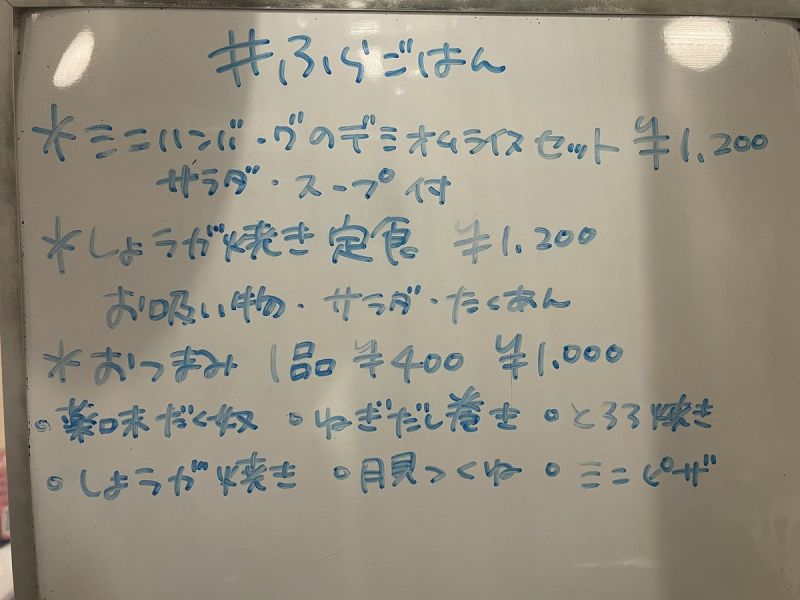 #ふらごはん
*ミニハンバーグのデミオムライスセット ¥1.200
サラダ・スープ付
*しょうが焼き定食 ¥1.200
お吸い物・サラダ・たくあん
*おつまみ 1品¥400 ¥1.000
。薬味だく奴 。ねぎだし巻き 。とろろ焼き
。しょうが焼き 。月見つくね 。ミニピザ